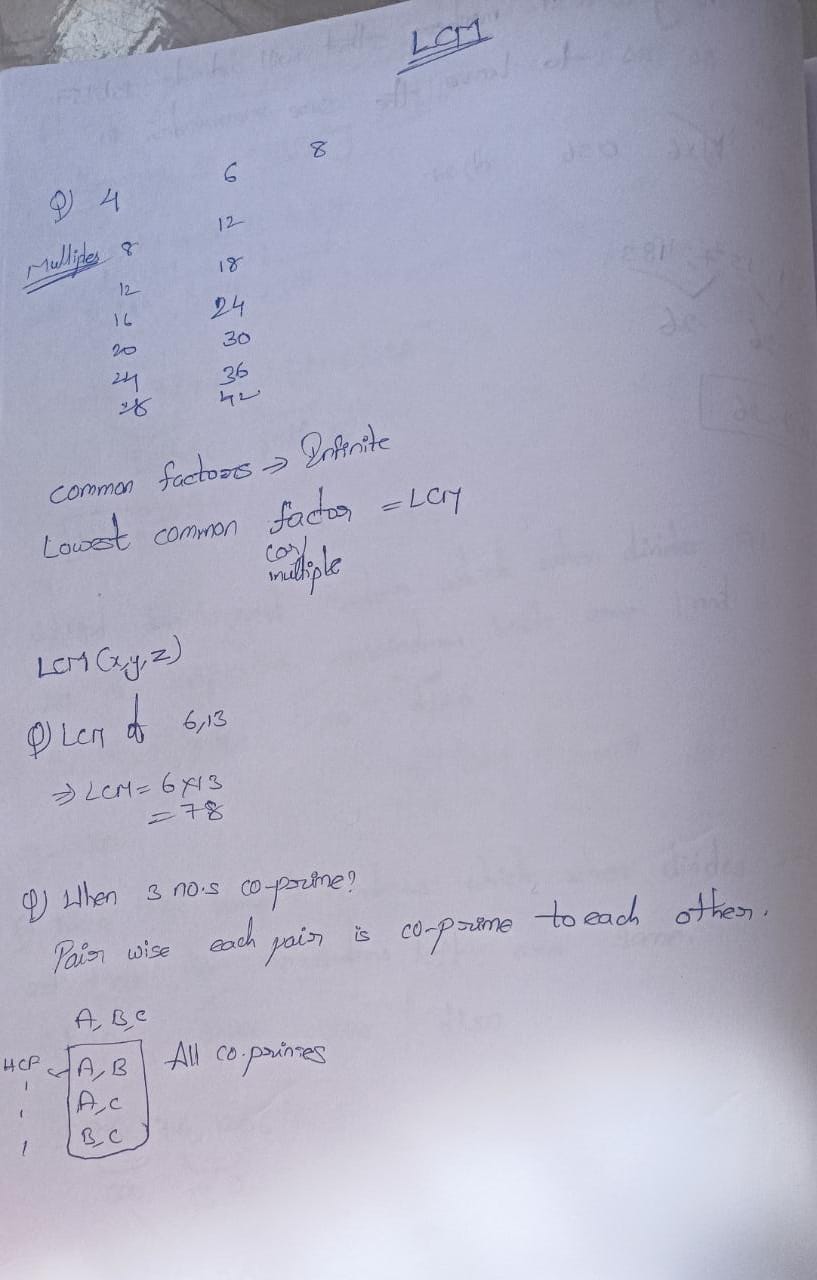 LCM
Q) 4 6 8
Multiples 8 12
12 18
16 24
20 30
24 36
28 42
common factors → Infinite
Lowest common factor = LCM
(or)
multiple
LCM (x,y,z)
Q) LCM of 6,13
⇒ LCM = 6×13
= 78
Q) When 3 no.s co-prime?
Pair wise each pair is co-prime to each other.
A, B, C
HCF A, B All co-primes
1 A, C
1 B, C
1